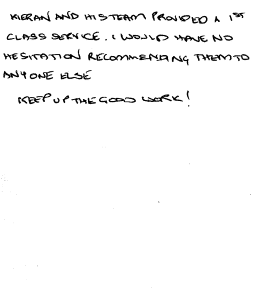 KIERAN AND HIS TEAM PROVIDED A 1ST
CLASS SERVICE. I WOULD HAVE NO
HESITATION RECOMMENDING THEM TO
ANYONE ELSE
KEEP UP THE GOOD WORK!